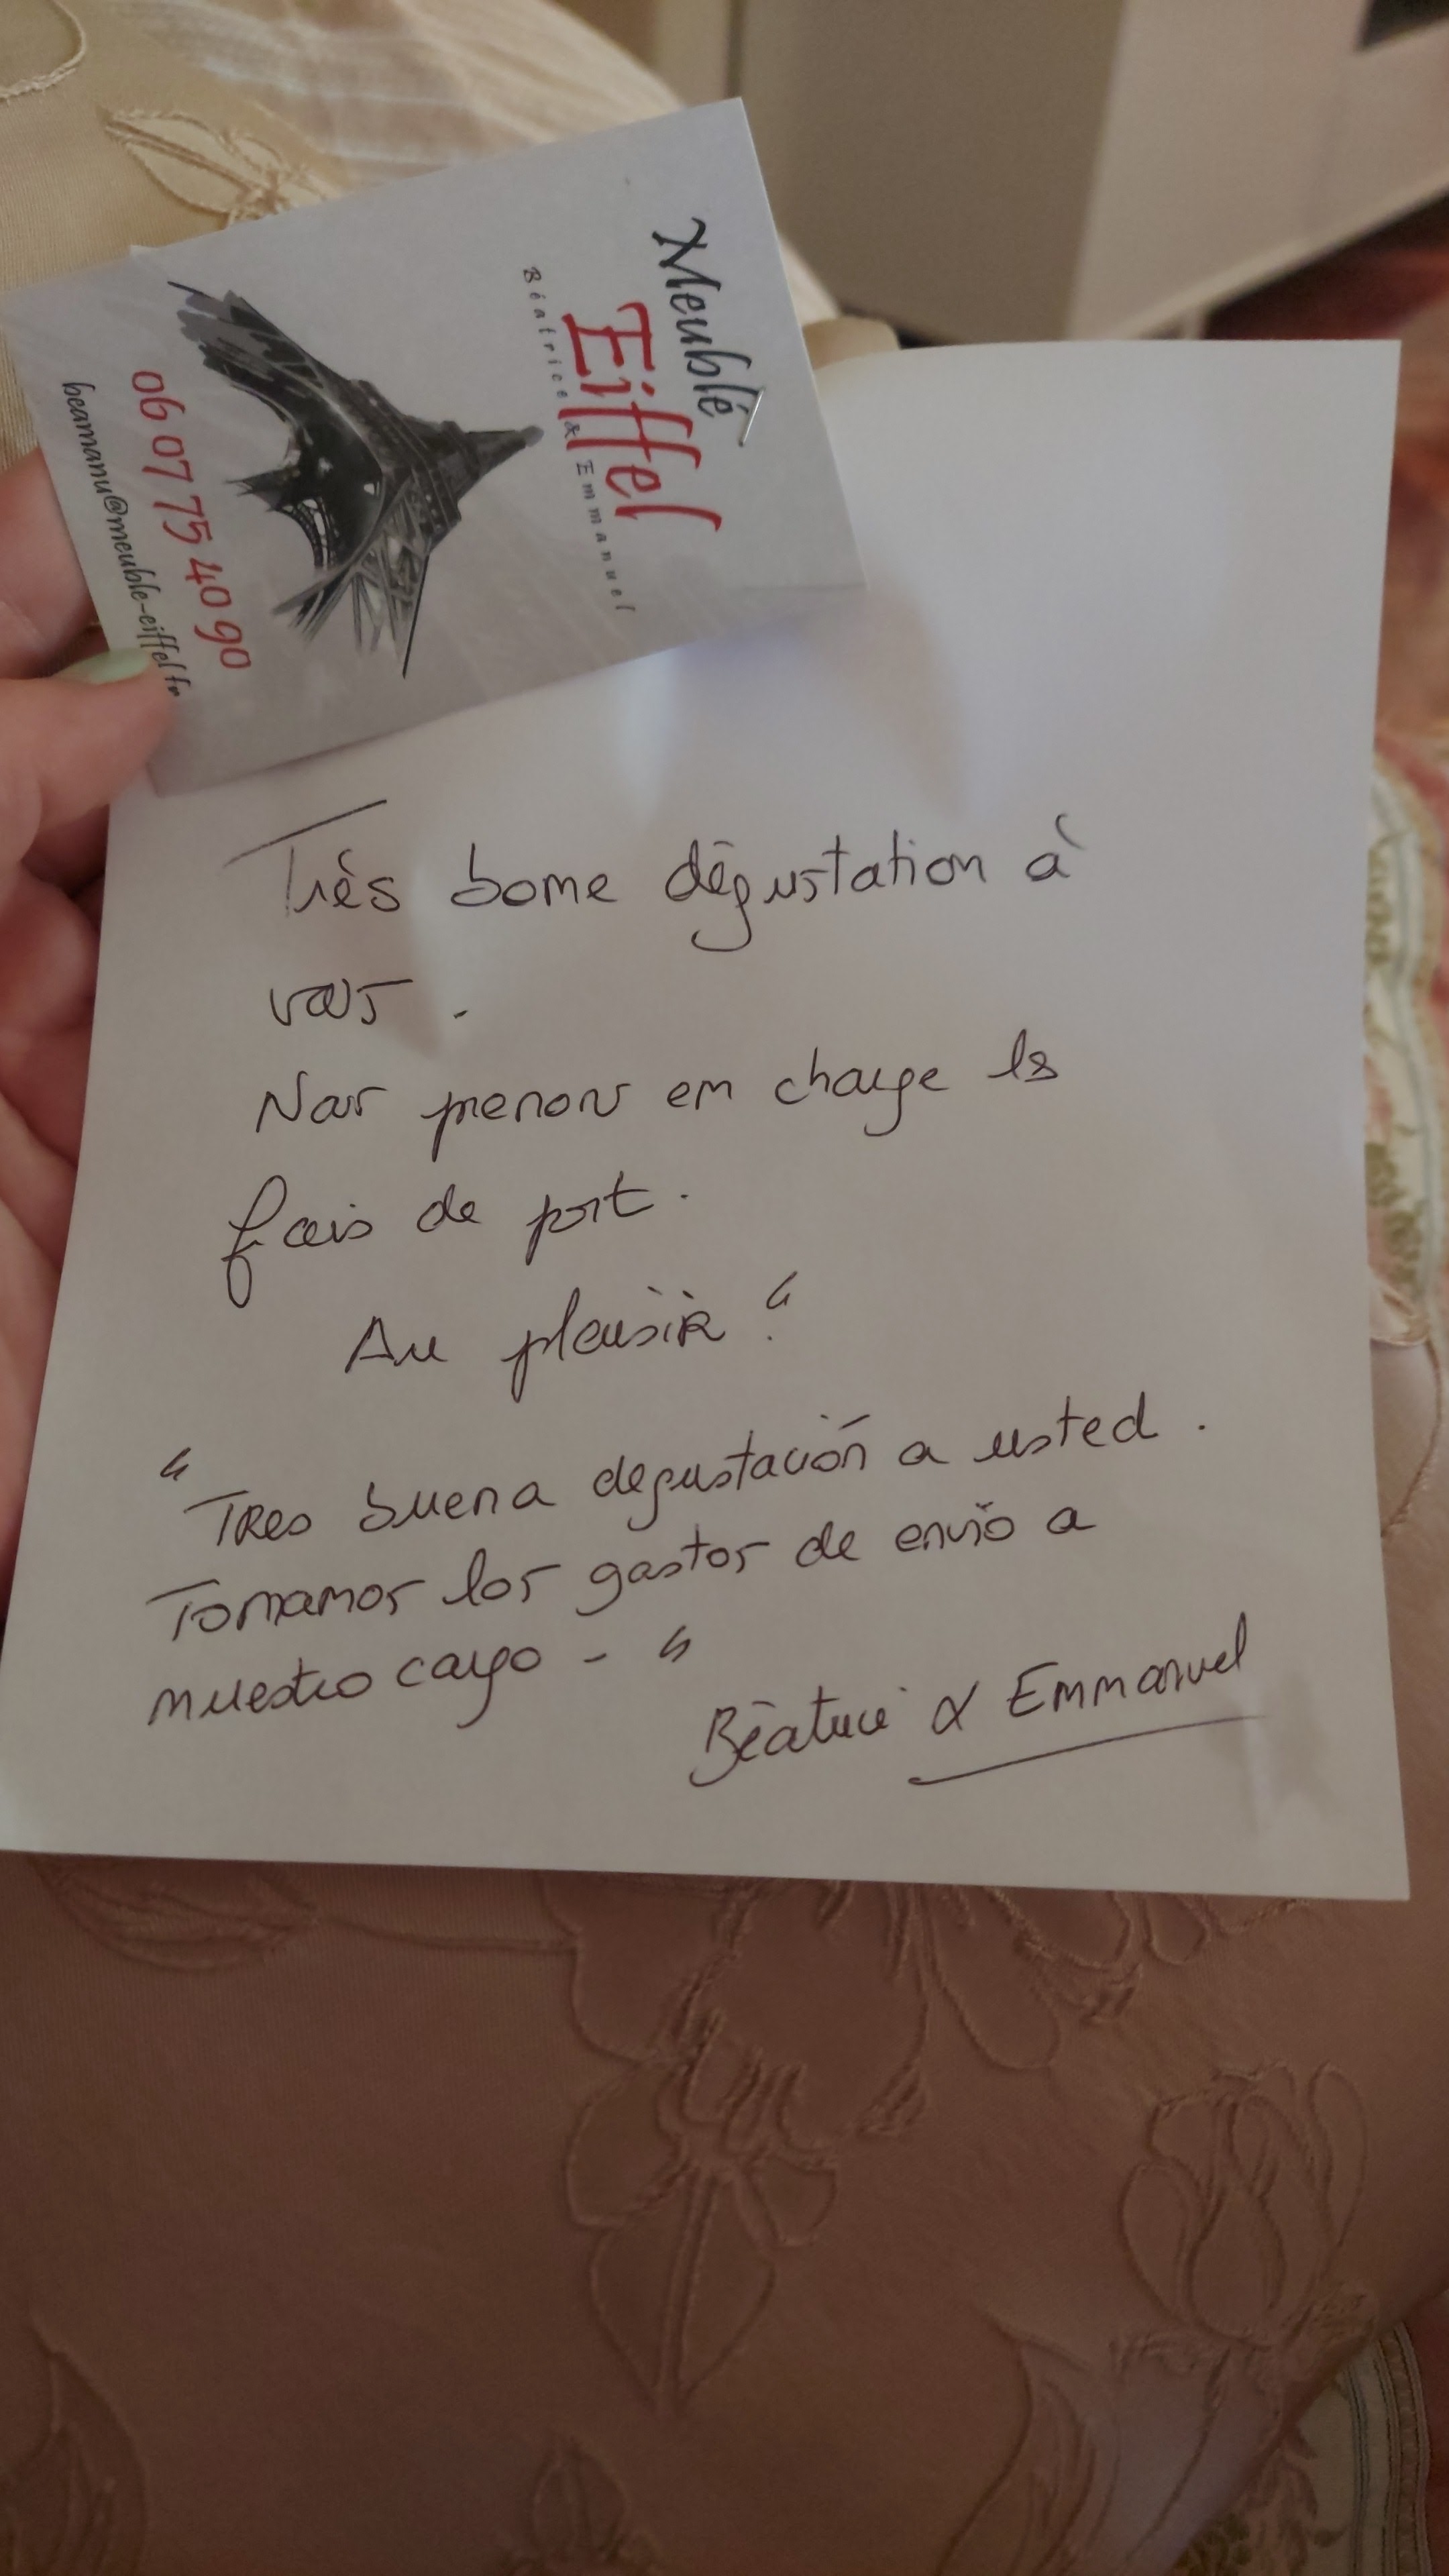 Meublé
Eiffel
Béatrice & Emmanuel
06 07 75 40 90
beamanu@meuble-eiffel.fr
Très bonne dégustation à
vous .
Nous prenons en charge les
frais de port .
Au plaisir "
" Tres buena degustación a usted .
Tomamos los gastos de envio a
nuestro cargo - "
Béatrice & Emmanuel